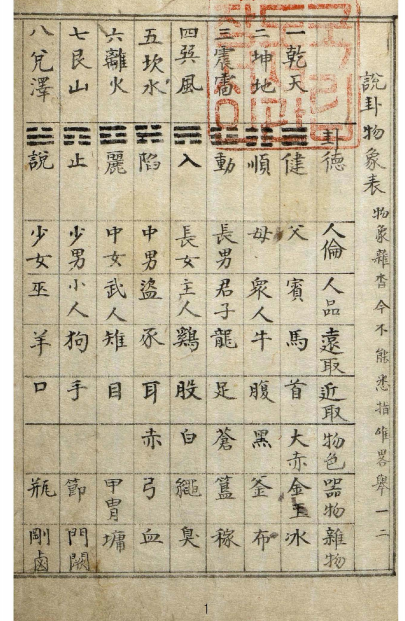 說卦物象表 物象雜沓今不能悉指唯畧舉一二
卦德 人倫 人品 遠取 近取 物色 器物 雜物
一乾天 ☰健 父 賓 馬 首 大赤 金玉 冰
二坤地 ☷順 母 衆人 牛 腹 黑 釜 布
三震雷 ☳動 長男 君子 龍 足 蒼 簋 稼
四巽風 ☴入 長女 主人 鷄 股 白 繩 臭
五坎水 ☵陷 中男 盜 豕 耳 赤 弓 血
六離火 ☲麗 中女 武人 雉 目 甲冑 墉
七艮山 ☶止 少男 小人 狗 手 節 門闕
八兌澤 ☱說 少女 巫 羊 口 瓶 剛鹵
1